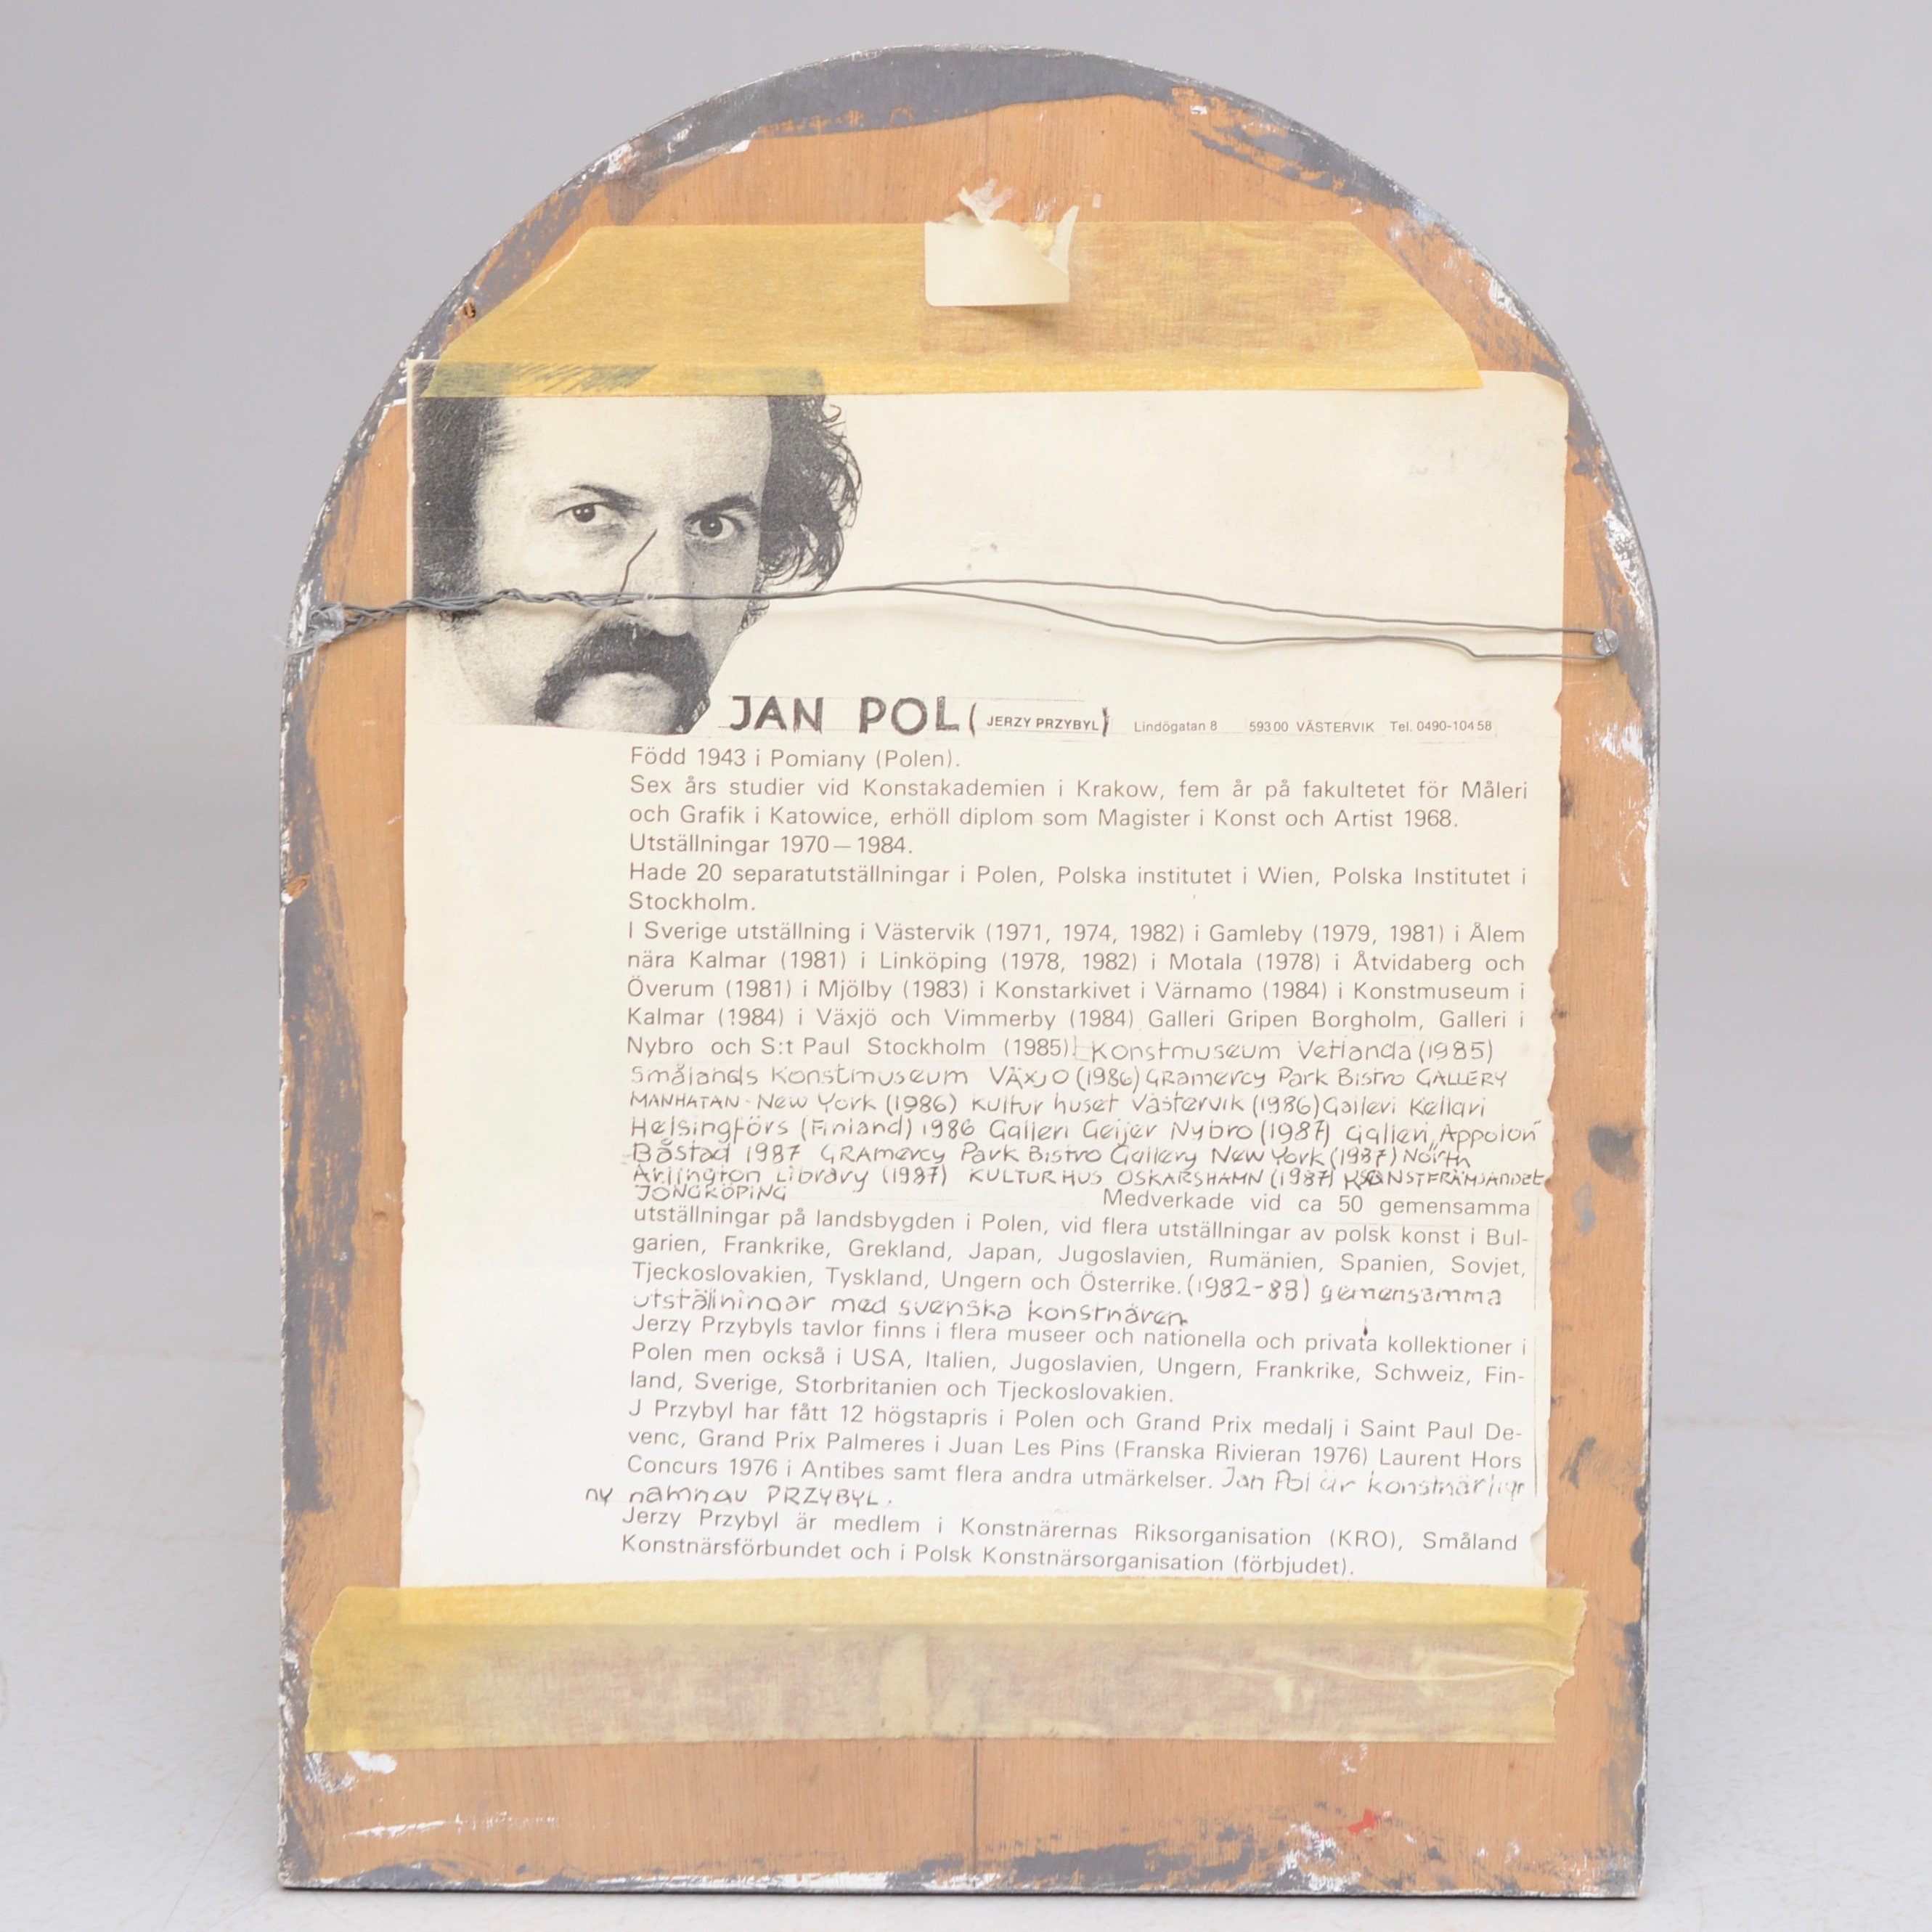 JAN POL ( JERZY PRZYBYL ) Lindögatan 8 593 00 VÄSTERVIK Tel. 0490-104 58
Född 1943 i Pomiany (Polen).
Sex års studier vid Konstakademien i Krakow, fem år på fakultetet för Måleri
och Grafik i Katowice, erhöll diplom som Magister i Konst och Artist 1968.
Utställningar 1970—1984.
Hade 20 separatutställningar i Polen, Polska institutet i Wien, Polska Institutet i
Stockholm.
I Sverige utställning i Västervik (1971, 1974, 1982) i Gamleby (1979, 1981) i Ålem
nära Kalmar (1981) i Linköping (1978, 1982) i Motala (1978) i Åtvidaberg och
Överum (1981) i Mjölby (1983) i Konstarkivet i Värnamo (1984) i Konstmuseum i
Kalmar (1984) i Växjö och Vimmerby (1984) Galleri Gripen Borgholm, Galleri i
Nybro och S:t Paul Stockholm (1985). Konstmuseum Vetlanda (1985)
Smålands Konstmuseum VÄXJO (1986) GRamercy Park Bistro GALLERY
MANHATAN - New York (1986) Kultur huset Västervik (1986) Galleri Kellari
Helsingförs (Finland) 1986 Galleri Geijer Nybro (1987) Galleri „Appolon"
Båstad 1987 GRAmercy Park Bistro Gallery New York (1987) North
Arlington Library (1987) KULTUR HUS OSKARSHAMN (1987) KONSTFRÄMJANDET
JONGKÖPING Medverkade vid ca 50 gemensamma
utställningar på landsbygden i Polen, vid flera utställningar av polsk konst i Bul-
garien, Frankrike, Grekland, Japan, Jugoslavien, Rumänien, Spanien, Sovjet,
Tjeckoslovakien, Tyskland, Ungern och Österrike. (1982-88) gemensamma
utställningar med svenska konstnären
Jerzy Przybyls tavlor finns i flera museer och nationella och privata kollektioner i
Polen men också i USA, Italien, Jugoslavien, Ungern, Frankrike, Schweiz, Fin-
land, Sverige, Storbritanien och Tjeckoslovakien.
J Przybyl har fått 12 högstapris i Polen och Grand Prix medalj i Saint Paul De-
venc, Grand Prix Palmeres i Juan Les Pins (Franska Rivieran 1976) Laurent Hors
Concurs 1976 i Antibes samt flera andra utmärkelser. Jan Pol är konstnärligr
ny namnav PRZYBYL.
Jerzy Przybyl är medlem i Konstnärernas Riksorganisation (KRO), Småland
Konstnärsförbundet och i Polsk Konstnärsorganisation (förbjudet).